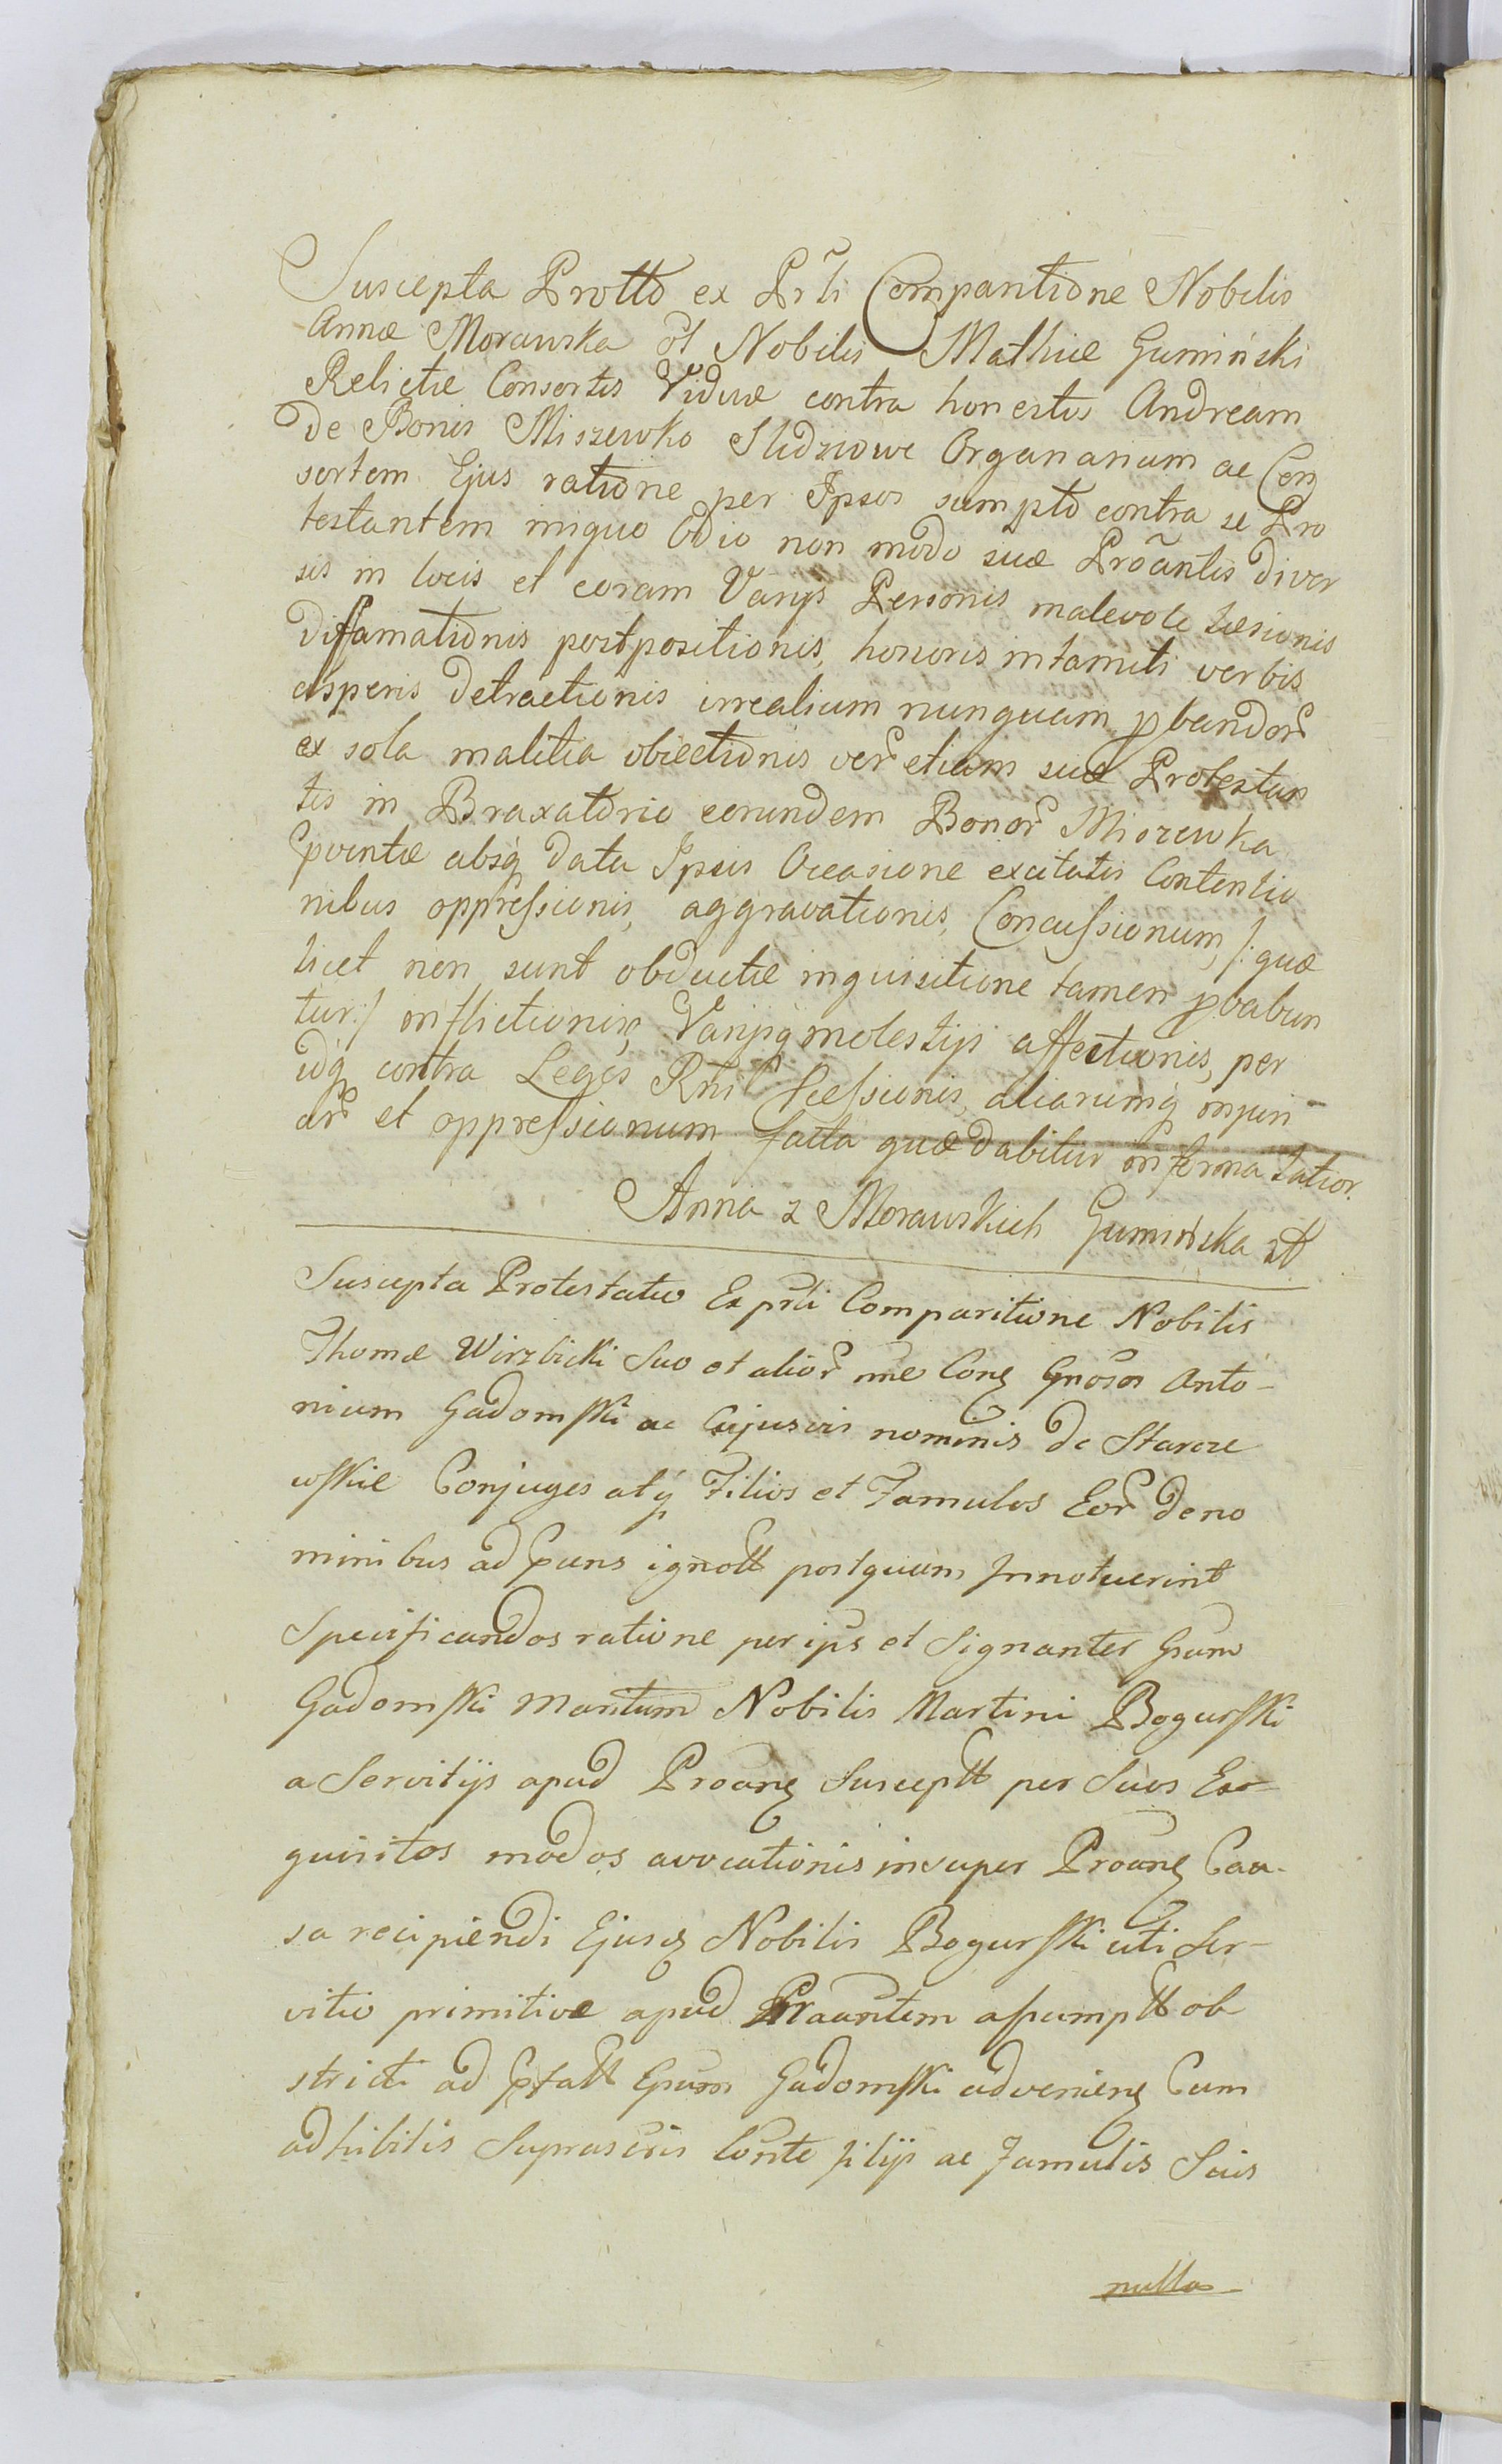 Suscepta Protto ex Prli Compantione Nobilis
Annæ Morawska ol Nobilis Mathiæ Gumiński
Relictæ Consortis Viduæ contra honestos Andream
de Bonis Miszewko Organarium ac Con
sortem Ejus ratione per Ipsos sumpto contra se Pro
testantem iniquo Odio non modo suæ Proãntis diver
sis in locis et coram Varijs Personis malevole læsionis
diffamationis postpositionis, honoris intamiti verbis
asperis detractionis irrealium nunquam pbandor
ex sola malitia obiectionis ver etiam suæ Protestan
tis in Braxatorio eorundem Bonor Miszewka
absq data Ipsis Occasione excitatis Contentio
nibus oppressionis, aggravationis, Concussionum, /: quæ
licet non sunt obductæ inquisitione tamen pbabun
tur :/ inflictionis, Varijsq molestijs affectionis, per
idq contra Leges Rni aliarumq injuri
ar et oppressionum facta quæ dabitur in forma latior.
Anna z Morawskich Gumińska
Suscepta Protestatio Ex prli Comparitione Nobilis
Thomæ Wirzbicki Suo et alior nne Conz Gnosos Anto-
nium Gadomski ac Cujusvis nominis de Starcze
wskie Conjuges atq Filios et Famulos Eor de no
minibus ad ignott postquam Innotuerint
Specificandos ratione per ips et Signanter Gsum
Gadomski Maritum Nobilis Martini Bogurski
a Servitijs apud Proanz Susceptt per Suos Ex-
quisitos modos avocationis insuper Proanz Cau-
sa recipiendi Ejusz Nobilis Bogurski uti Ser-
vitio primitive apud Praantem assumptt ob
stricti ad Gsum Gadomski advenienz Cum
adhibitis Suprascris Conte filijs ac Famulis Suis
nulla